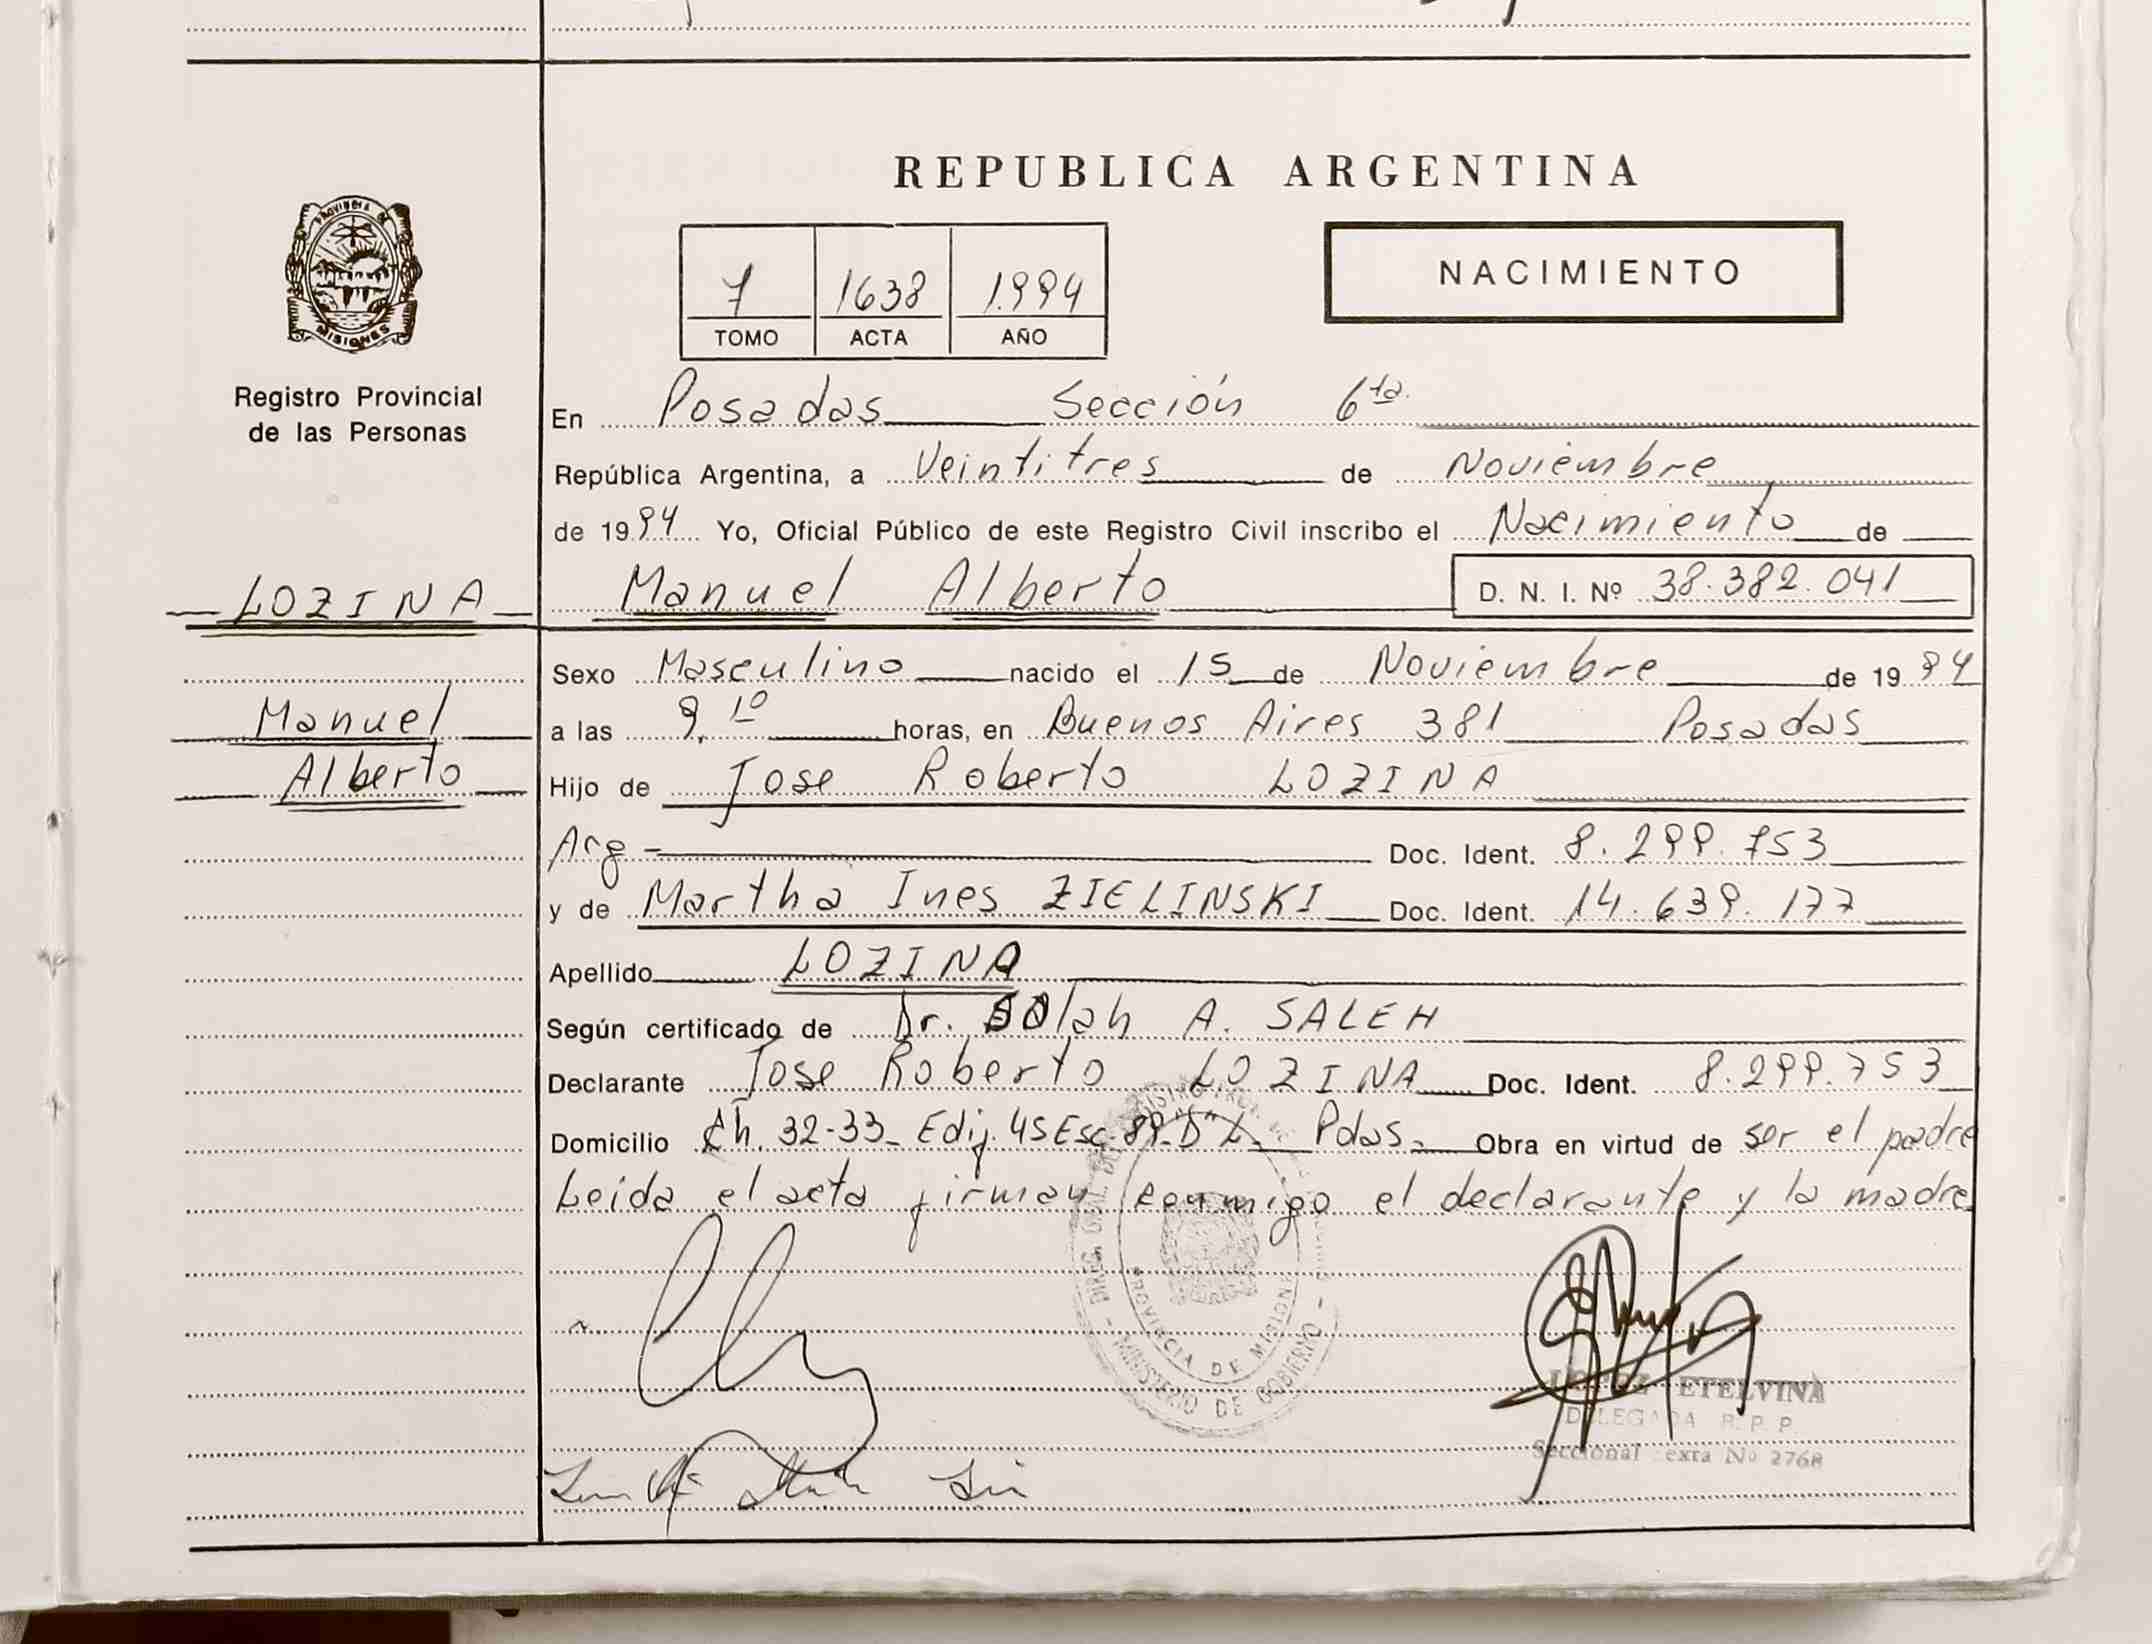 REPUBLICA ARGENTINA
PROVINCIA DE
MISIONES
Registro Provincial
de las Personas
7 1638 1.994
TOMO ACTA AÑO
NACIMIENTO
En Posadas Sección 6ta.
República Argentina, a Veintitres de Noviembre
de 1994 Yo, Oficial Público de este Registro Civil inscribo el Nacimiento de
LOZINA
Manuel Alberto D. N. I. Nº 38.382.041
Manuel
Alberto
Sexo Masculino nacido el 15 de Noviembre de 1994
a las 9,10 horas, en Buenos Aires 381 Posadas
Hijo de Jose Roberto LOZINA
Arg - Doc. Ident. 8.299.753
y de Martha Ines ZIELINSKI Doc. Ident. 14.639.177
Apellido LOZINA
Según certificado de Dr. Salah A. SALEH
Declarante Jose Roberto LOZINA Doc. Ident. 8.299.753
Domicilio Ch. 32-33_ Edif. 45 Esc. 89_"D" Pdas. Obra en virtud de ser el padre
Leida el acta firman conmigo el declarante y la madre
PROVINCIA DE MISIONES
MINISTERIO DE GOBIERNO
ETELVINA
DELEGADA R. P. P.
Seccional Sexta Nº 2768